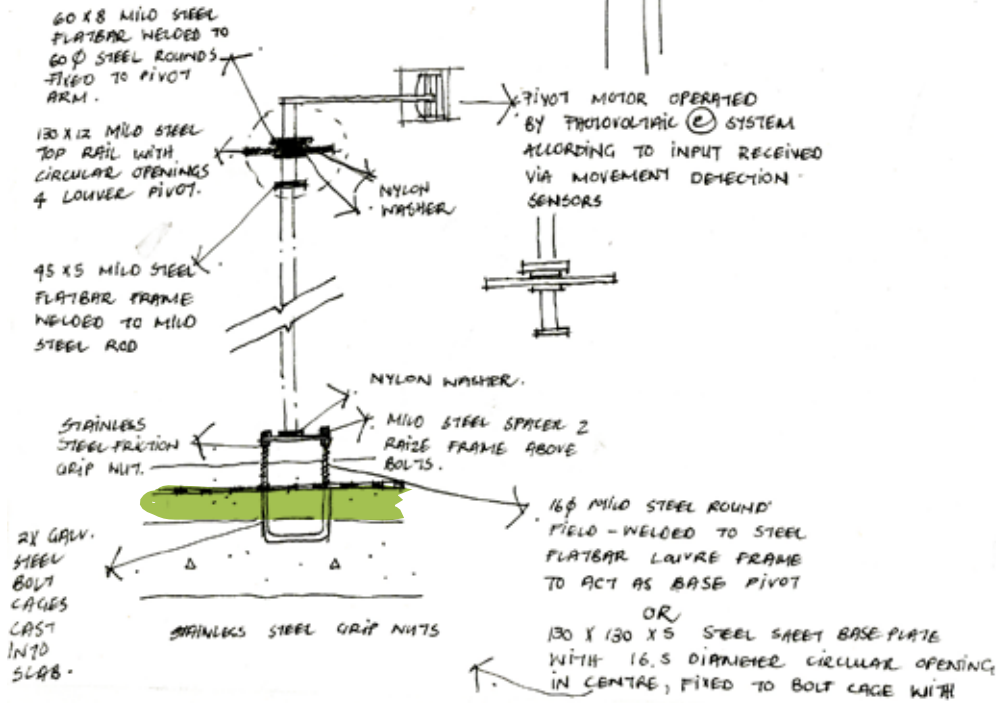 60 X 8 MILD STEEL
FLATBAR WELDED TO
60 Ø STEEL ROUNDS
FIXED TO PIVOT
ARM.
130 X 12 MILD STEEL
TOP RAIL WITH
CIRCULAR OPENINGS
4 LOUVER PIVOT.
45 X 5 MILD STEEL
FLATBAR FRAME
WELDED TO MILD
STEEL ROD
PIVOT MOTOR OPERATED
BY PHOTOVOLTAIC e SYSTEM
ACCORDING TO INPUT RECEIVED
VIA MOVEMENT DETECTION
SENSORS
NYLON
WASHER
NYLON WASHER.
STAINLESS
STEEL FRICTION
GRIP NUT.
MILD STEEL SPACER 2
RAIZE FRAME ABOVE
BOLTS.
2X GALV.
STEEL
BOLT
CAGES
CAST
INTO
SLAB.
16Ø MILD STEEL ROUND
FIELD-WELDED TO STEEL
FLATBAR LOUVRE FRAME
TO ACT AS BASE PIVOT
OR
130 X 130 X 5 STEEL SHEET BASE PLATE
WITH 16.5 DIAMETER CIRCULAR OPENING
IN CENTRE, FIXED TO BOLT CAGE WITH
STAINLESS STEEL GRIP NUTS